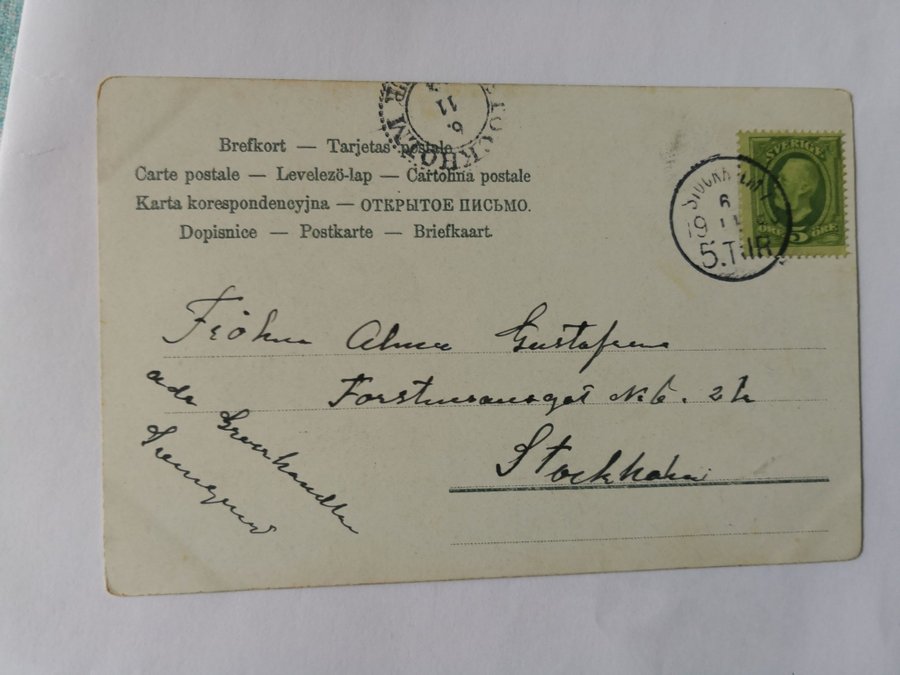 Brefkort — Tarjetas postale
Carte postale — Levelezö-lap — Cartolina postale
Karta korespondencyjna — ОТКРЫТОЕ ПИСЬМО.
Dopisnice — Postkarte — Briefkaart.
STOCKHOLM
6.
11
SVERIGE
5 ÖRE
STOCKHOLM
6
19 11
5.TUR
Fröken Alma Gustafsson
N. 6. 2 tr
Stockholm